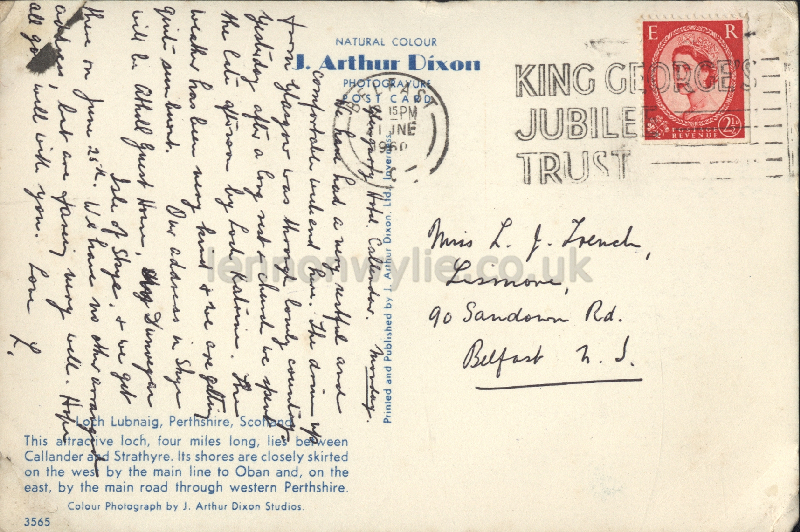 NATURAL COLOUR
J. Arthur Dixon
PHOTOGRAVURE
POST CARD
15 PM
JUNE
1960
KING GEORGE'S
JUBILEE
TRUST
E R
POSTAGE
REVENUE
2½D
Hotel, Callander. Monday.
We have had a very restful and
comfortable weekend here. The drive up
from Glasgow was through lovely country.
Yesterday after a long rest & church we spent
the late afternoon by Loch Katrine. The
weather has been very kind & we are getting
quite sun burnt. Our address in Skye
will be Atholl Guest House, Dunvegan
Isle of Skye, & we get
there on June 25th. We have no other arranged
address, but are faring very well. Hope
all goes well with you. Love L.
Miss L. J. French,
Lismore,
90 Sandown Rd.
Belfast N. I.
Printed and Published by J. Arthur Dixon, Ltd., Inverness.
lennonwylie.co.uk
Loch Lubnaig, Perthshire, Scotland
This attractive loch, four miles long, lies between
Callander and Strathyre. Its shores are closely skirted
on the west by the main line to Oban and, on the
east, by the main road through western Perthshire.
Colour Photograph by J. Arthur Dixon Studios.
3565